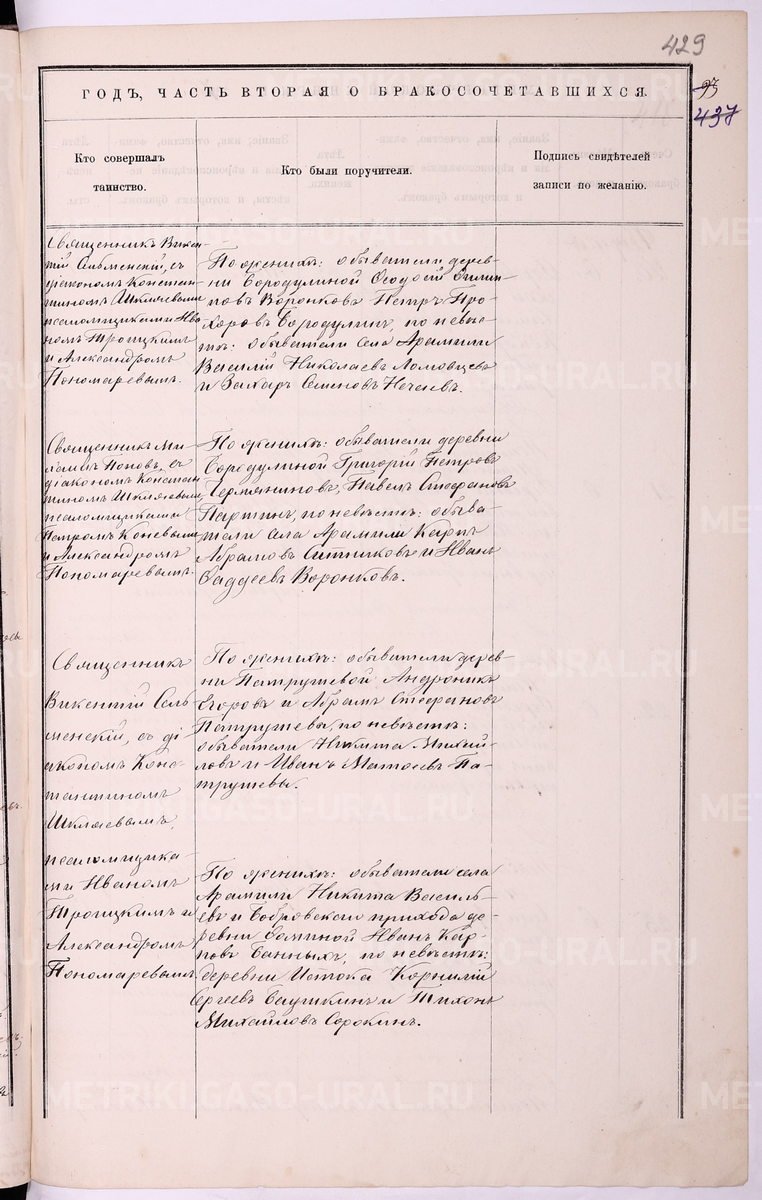 429
93
437
ГОДЪ, ЧАСТЬ ВТОРАЯ О БРАКОСОЧЕТАВШИХСЯ.
Кто совершалъ
таинство.
Кто были поручители.
Подпись свидѣтелей
записи по желанію.
Священникъ Викен-
тій Сельменскій, съ
діакономъ Констан-
тиномъ Шкляевымъ
псаломщиками Ива
номъ Троицкимъ
и Александромъ
Пономаревымъ.
По женихѣ: обыватели дерев-
ни Бородулиной Ѳеодосій Филип-
повъ Воронковъ Петръ Про-
хоровъ Бородулинъ, по невѣс-
тѣ: обыватели села Арамили
Василій Николаевъ Ломовцевъ
и Захаръ Семеновъ Нечаевъ.
Священникъ Ми-
хаилъ Поповъ, съ
діакономъ Констан
тиномъ Шкляевымъ,
псаломщиками
Петромъ Коневымъ
и Александромъ
Пономаревымъ.
По женихѣ: обыватели деревни
Бородулиной Григорій Петровъ
Павелъ Стефановъ
Партинъ, по невѣстѣ: обыва-
тели села Арамили Карпъ
Абрамовъ Ситниковъ и Иванъ
Ѳаддеевъ Воронковъ.
Священникъ
Викентій Сель
менскій, съ ді
акономъ Конс-
тантиномъ
Шкляевымъ,
псаломщика-
ми Иваномъ
Троицкимъ и
Александромъ
Пономаревымъ
По женихѣ: обыватели дерев-
ни Патрушевой Андроникъ
Егоровъ и Абрамъ Стефановъ
Патрушевы, по невѣстѣ:
обыватели Никита Михай-
ловъ и Иванъ Матѳеевъ Па-
трушевы.
По женихѣ: обыватели села
Арамили Никита Василь-
евъ и Бобровскаго прихода де-
ревни Фоминой Иванъ Кар-
повъ Банныхъ, по невѣстѣ:
деревни Истока Корнилій
Сергеевъ Баушкинъ и Тихонъ
Михайловъ Сорокинъ.
METRIKI.GASO-URAL.RU